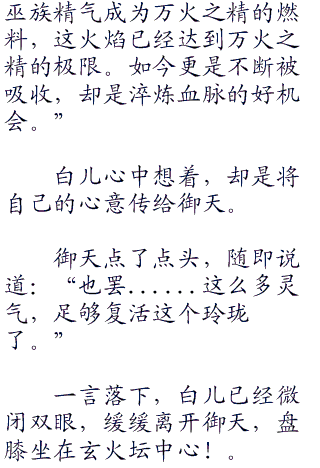 巫族精气成为万火之精的燃
料，这火焰已经达到万火之
精的极限。如今更是不断被
吸收，却是淬炼血脉的好机
会。”
白儿心中想着，却是将
自己的心意传给御天。
御天点了点头，随即说
道：“也罢......这么多灵
气，足够复活这个玲珑
了。”
一言落下，白儿已经微
闭双眼，缓缓离开御天，盘
膝坐在玄火坛中心！。